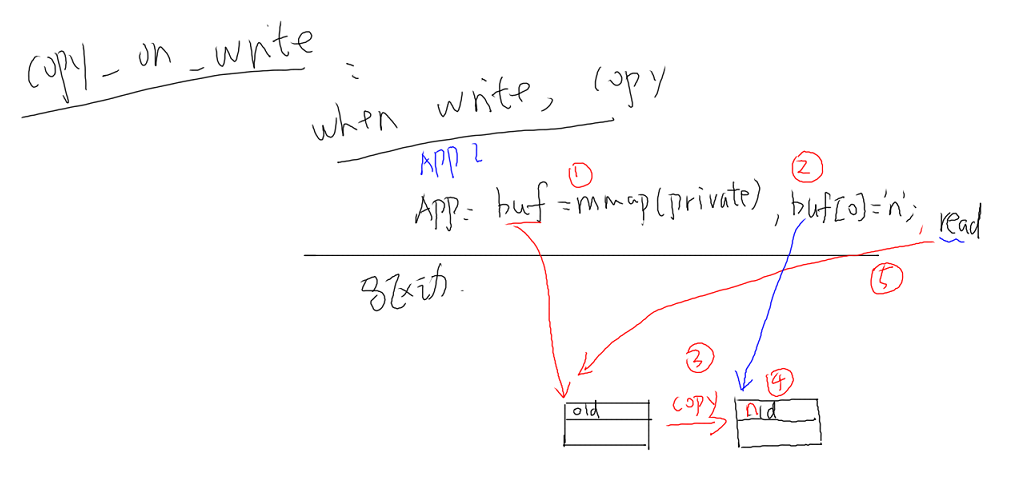 copy_on_write :
when write, copy
APP 2
①
②
APP: buf =mmap(private), buf[0]='n'; read
驱动.
⑤
③
④
old
copy
nld